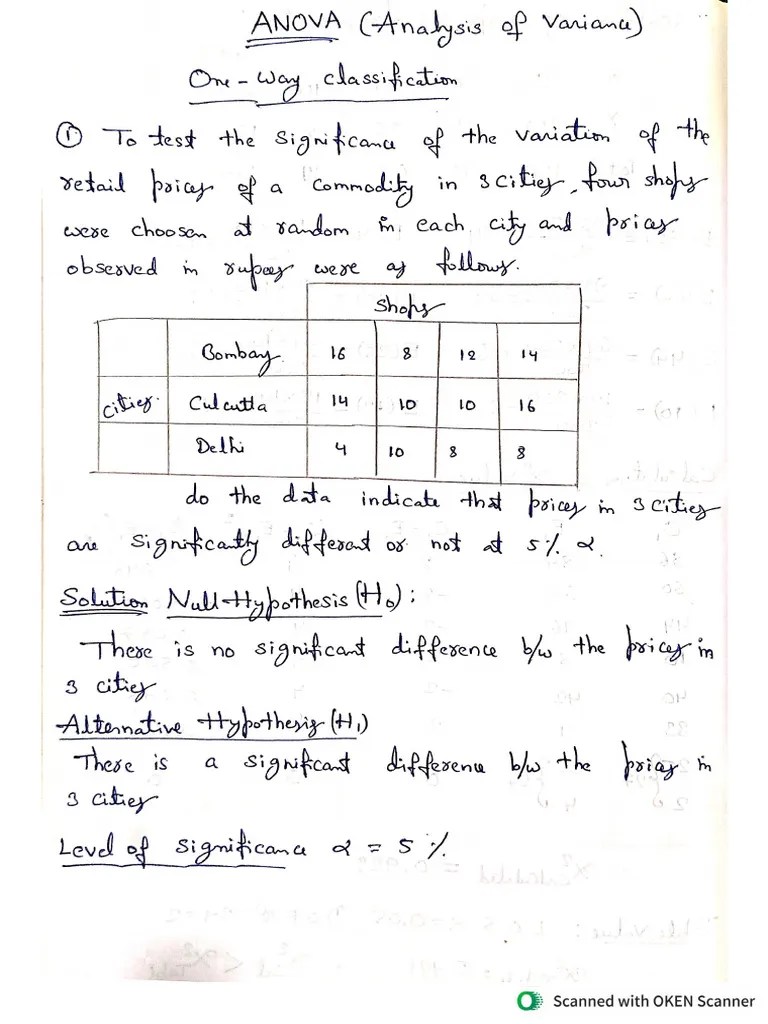 ANOVA (Analysis of Variance)
One-Way classification
① To test the significance of the variation of the
retail prices of a commodity in 3 cities, four shops
were choosen at random in each city and prices
observed in rupees were as follows.
Shops
Bombay 16 8 12 14
Cities. Culcutta 14 10 10 16
Delhi 4 10 8 8
do the data indicate that prices in 3 cities
are significantly different or not at 5% α.
Solution Null-Hypothesis (H₀):
There is no significant difference b/w the prices in
3 cities
Alternative Hypothesis (H₁)
There is a significant difference b/w the prices in
3 cities
Level of significance α = 5%.
Scanned with OKEN Scanner